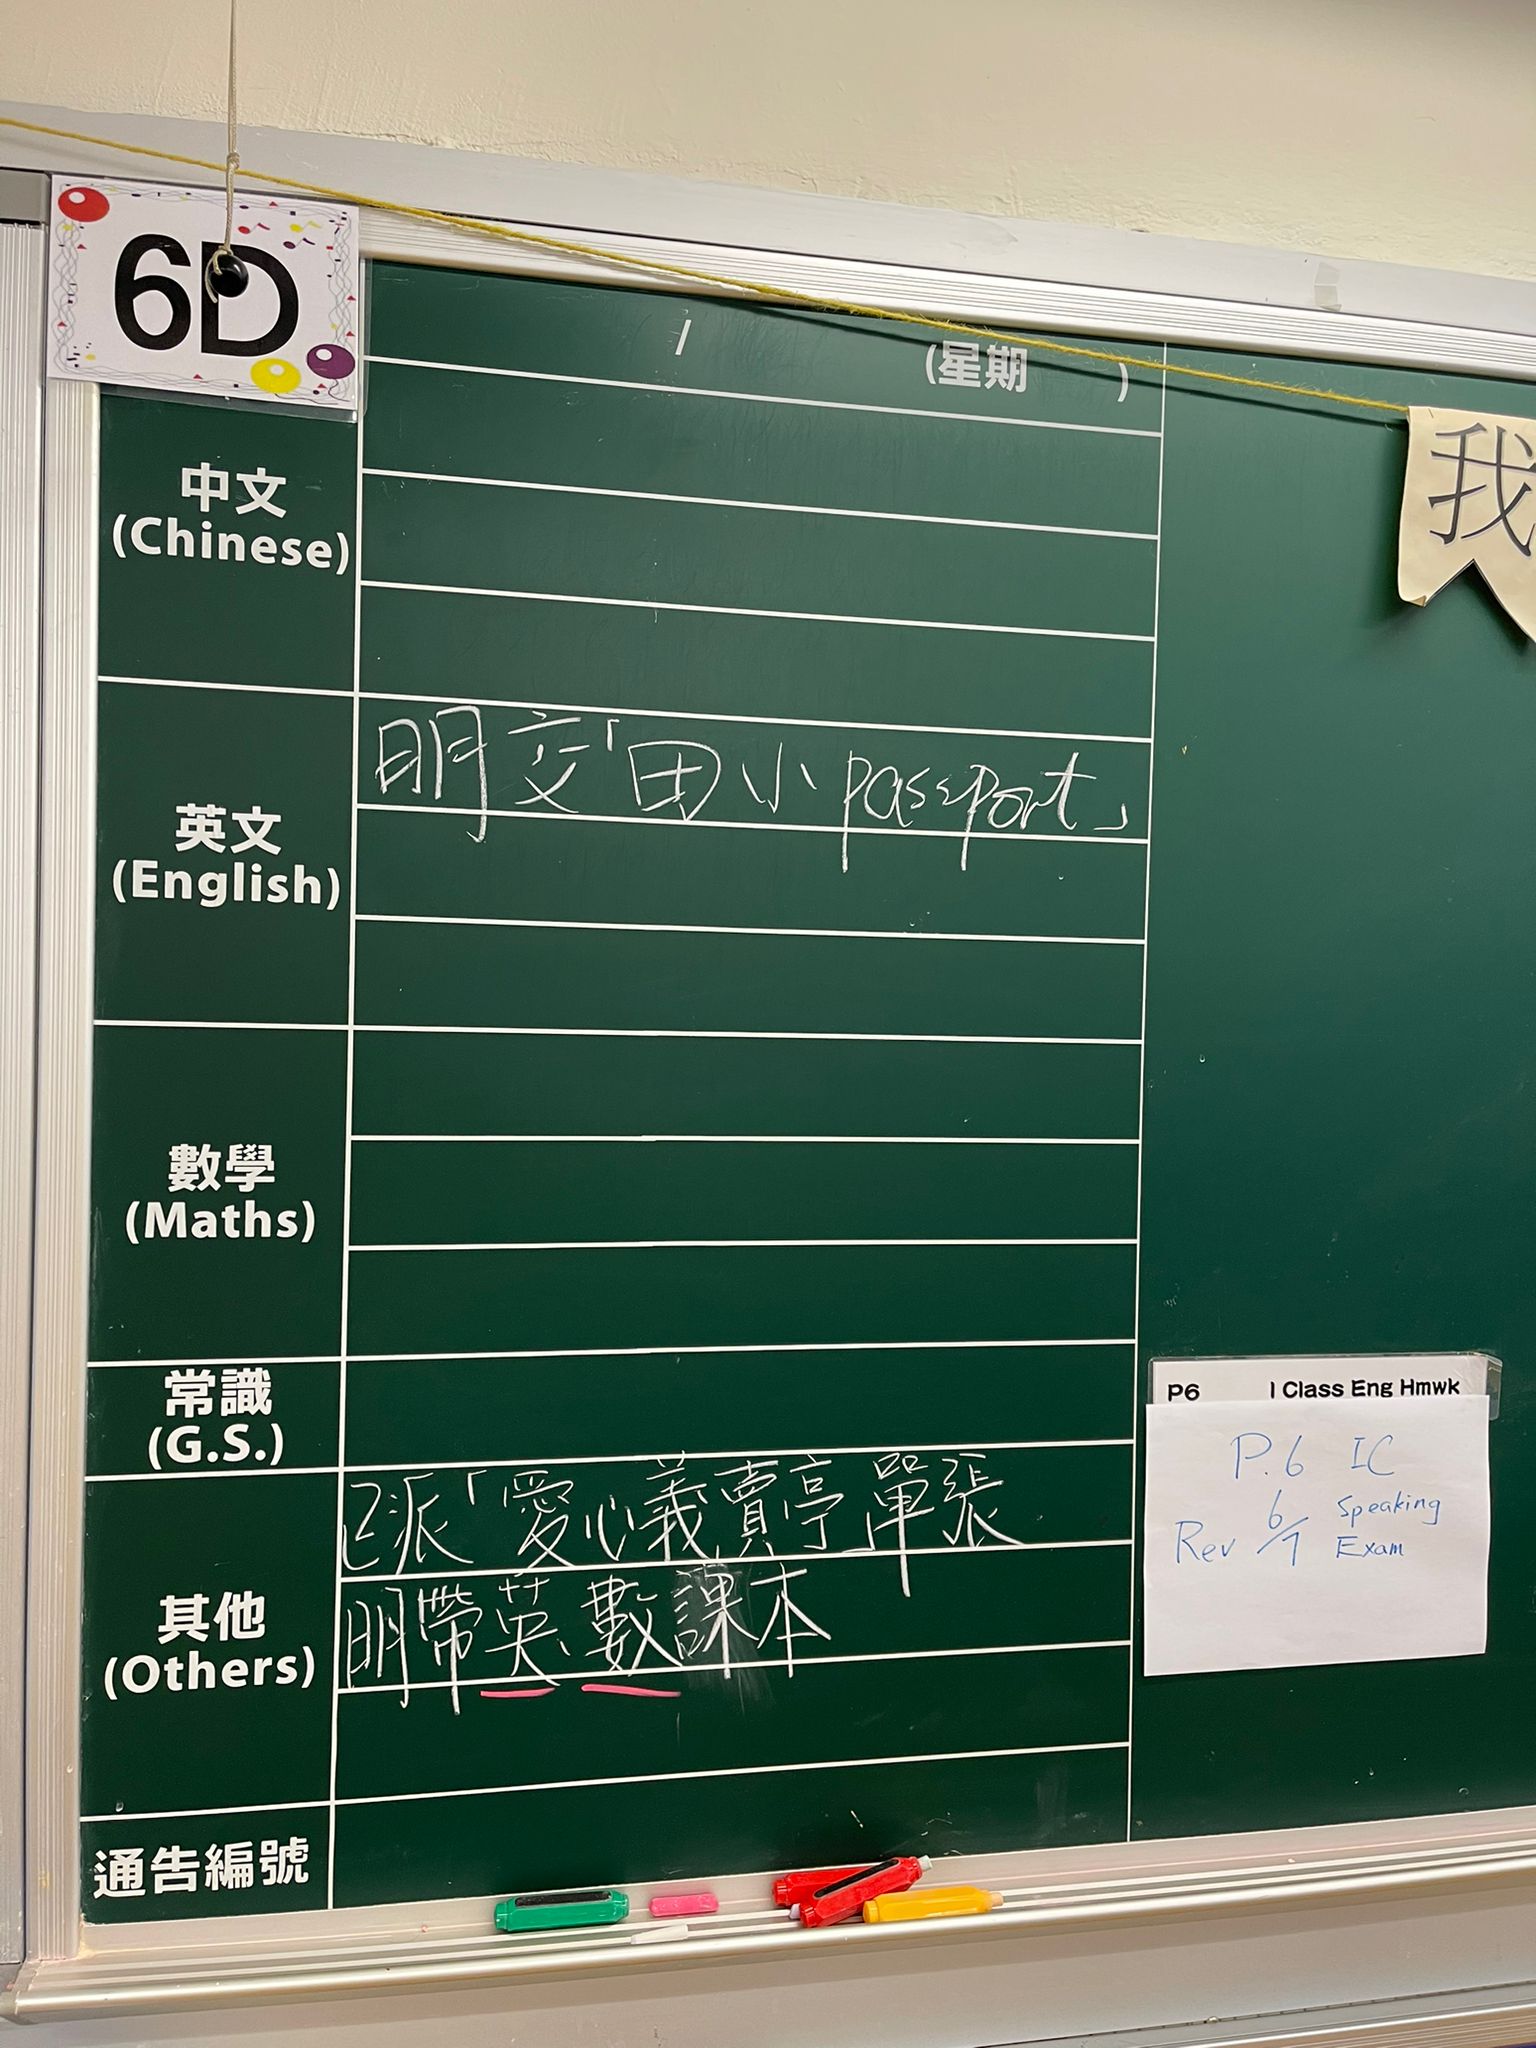 6D
/ (星期 )
中文
(Chinese)
英文
(English)
明交「田小passport」
數學
(Maths)
常識
(G.S.)
其他
(Others)
已派「愛心義賣亭」單張
明帶英、數課本
通告編號
我
P6 I Class Eng Hmwk
P.6 IC
Rev 6/7 Speaking
Exam